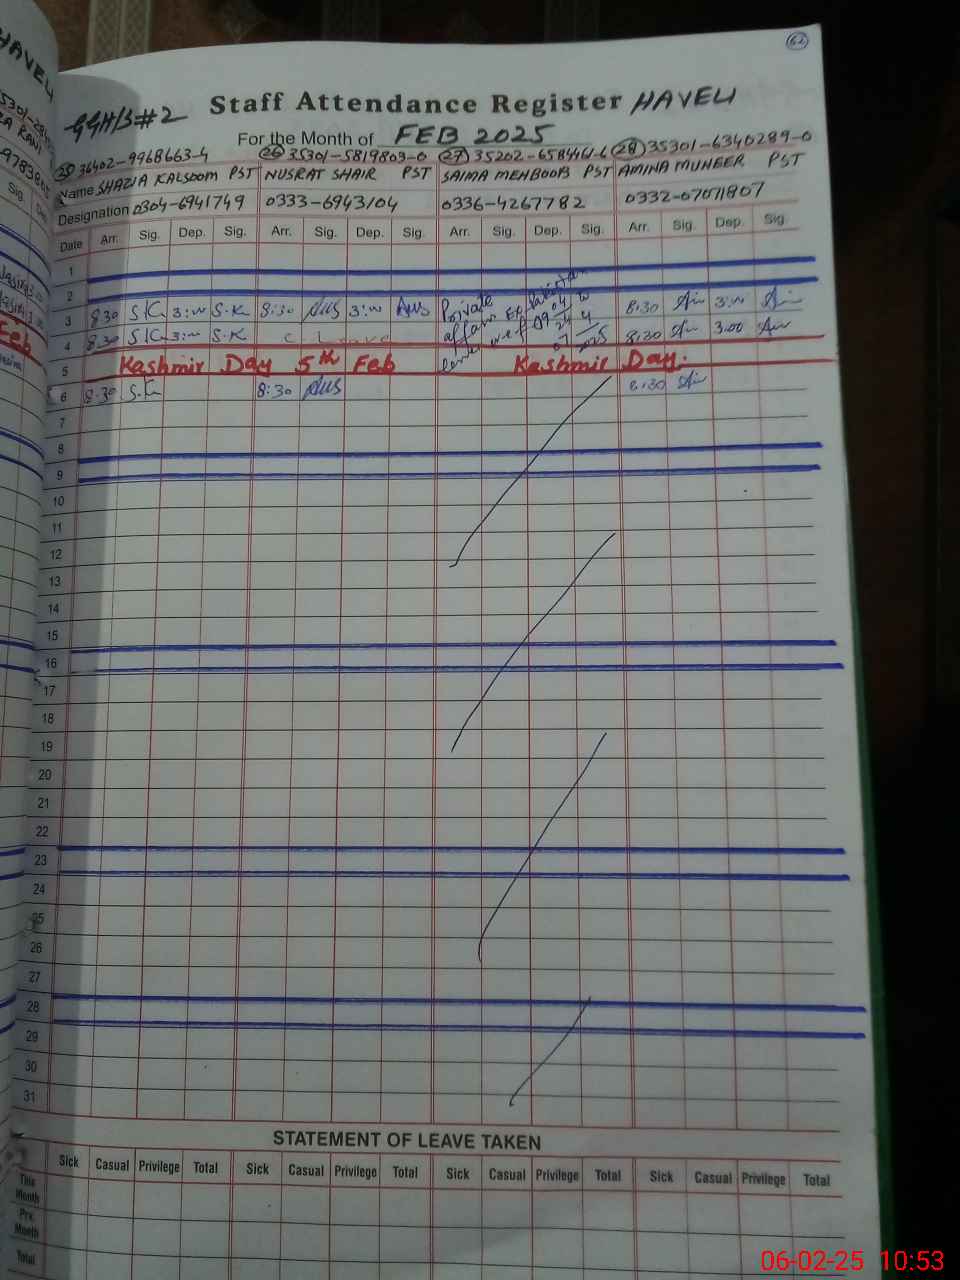 62
GGHS#2 Staff Attendance Register HAVELI
For the Month of FEB 2025
25 36402-9968663-4 26 35301-5819803-0 27 35202-6584461-6 28 35301-6340289-0
Name SHAZIA KALSOOM PST NUSRAT SHAIR PST SAIMA MEHBOOB PST AMINA MUNEER PST
Designation 0304-6941749 0333-6943104 0336-4267782 0332-07011807
Date Arr. Sig. Dep. Sig. Arr. Sig. Dep. Sig. Arr. Sig. Dep. Sig. Arr. Sig. Dep. Sig.
1
2
3 8:30 S.K 3:00 S.K 8:30 3:00 Private 8:30 3:00
4 8:30 S.K 3:00 S.K C. Leave affairs Ex. Pakistan leave w.e.f 8:30 3:00
5 Kashmir Day 5th Feb Kashmir Day.
6 8:30 S.K 8:30 8:30
7
8
9
10
11
12
13
14
15
16
17
18
19
20
21
22
23
24
25
26
27
28
29
30
31
STATEMENT OF LEAVE TAKEN
Sick Casual Privilege Total Sick Casual Privilege Total Sick Casual Privilege Total Sick Casual Privilege Total
This Month
Prv. Month
Total
06-02-25 10:53